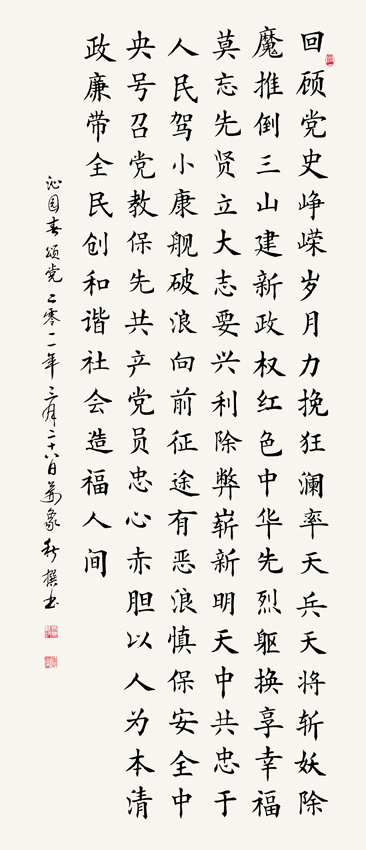 回顾党史峥嵘岁月力挽狂澜率天兵天将斩妖除
魔推倒三山建新政权红色中华先烈躯换享幸福
莫忘先贤立大志要兴利除弊崭新明天中共忠于
人民驾小康舰破浪向前征途有恶浪慎保安全中
央号召党教保先共产党员忠心赤胆以人为本清
政廉带全民创和谐社会造福人间
沁园春颂党二零一一年三月二十八日象新撰书